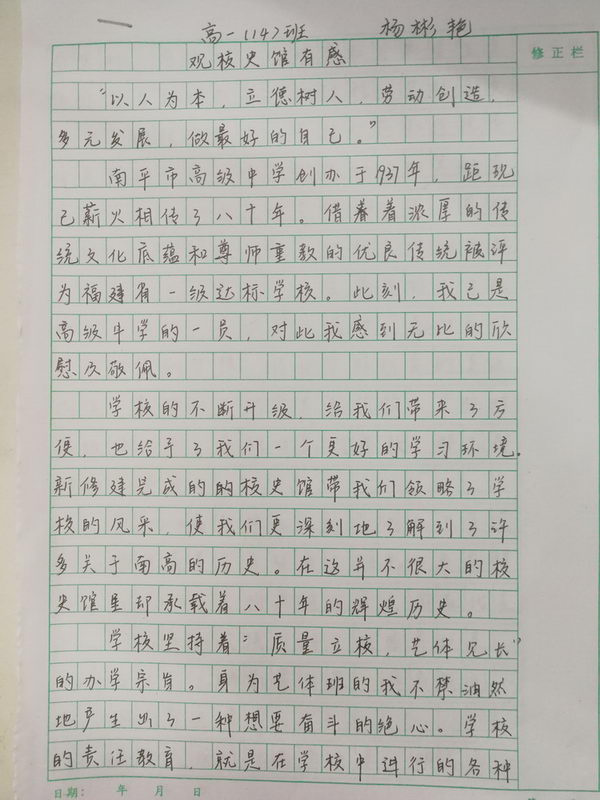 高一(14)班 杨彬艳
修正栏
观校史馆有感
"以人为本，立德树人，劳动创造，
多元发展，做最好的自己。"
南平市高级中学创办于1937年，距现
已薪火相传了八十年。借着着浓厚的传
统文化底蕴和尊师重教的优良传统被评
为福建省一级达标学校。此刻，我已是
高级中学的一员，对此我感到无比的欣
慰及敬佩。
学校的不断升级，给我们带来了方
便，也给予了我们一个更好的学习环境。
新修建完成的的校史馆带我们领略了学
校的风采，使我们更深刻地了解到了许
多关于南高的历史。在这并不很大的校
史馆里却承载着八十年的辉煌历史。
学校坚持着"质量立校，艺体见长"
的办学宗旨。身为艺体班的我不禁油然
地产生出了一种想要奋斗的绝心。学校
的责任教育，就是在学校中进行的各种
日期： 年 月 日